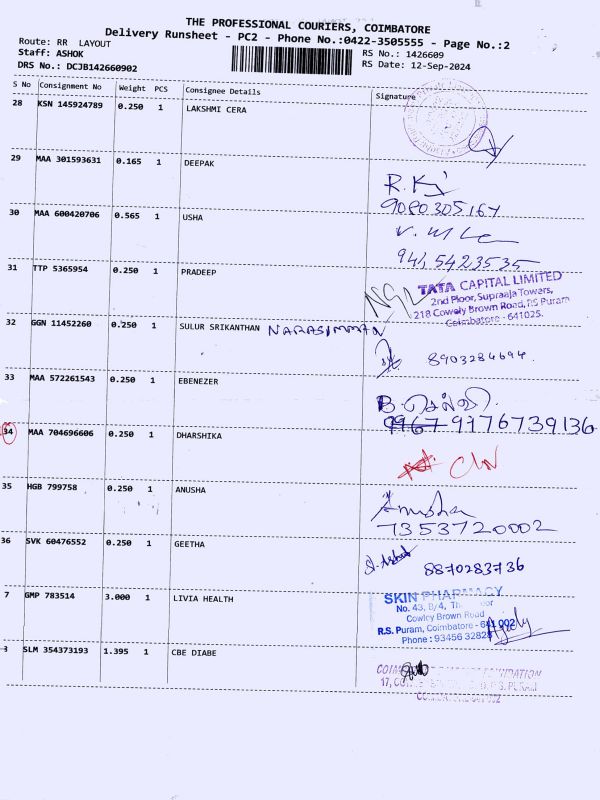 THE PROFESSIONAL COURIERS, COIMBATORE
Delivery Runsheet - PC2 - Phone No.:0422-3505555 - Page No.:2
Route: RR LAYOUT
RS No.: 1426609
Staff: ASHOK
RS Date: 12-Sep-2024
DRS No.: DCJB142660902
S No Consignment No Weight PCS Consignee Details Signature
28 KSN 145924789 0.250 1 LAKSHMI CERA
29 MAA 301593631 0.165 1 DEEPAK
R.K
9080305164
30 MAA 600420706 0.565 1 USHA
9415423535
31 TTP 5365954 0.250 1 PRADEEP
TATA CAPITAL LIMITED
2nd Floor, Supraaja Towers,
218 Cowely Brown Road, RS Puram
Coimbatore - 641025.
32 GGN 11452260 0.250 1 SULUR SRIKANTHAN NARASIMMAN
8903284694.
33 MAA 572261543 0.250 1 EBENEZER
B. செல்வி.
9967 9176739136
34 MAA 704696606 0.250 1 DHARSHIKA
35 HGB 799758 0.250 1 ANUSHA
Anusha
7353720002
36 SVK 60476552 0.250 1 GEETHA
8870283736
7 GMP 783514 3.000 1 LIVIA HEALTH
SKIN PHARMACY
No. 43, B/4,
Cowley Brown Road
R.S. Puram, Coimbatore - 641 002
Phone : 93456 32828
SLM 354373193 1.395 1 CBE DIABE